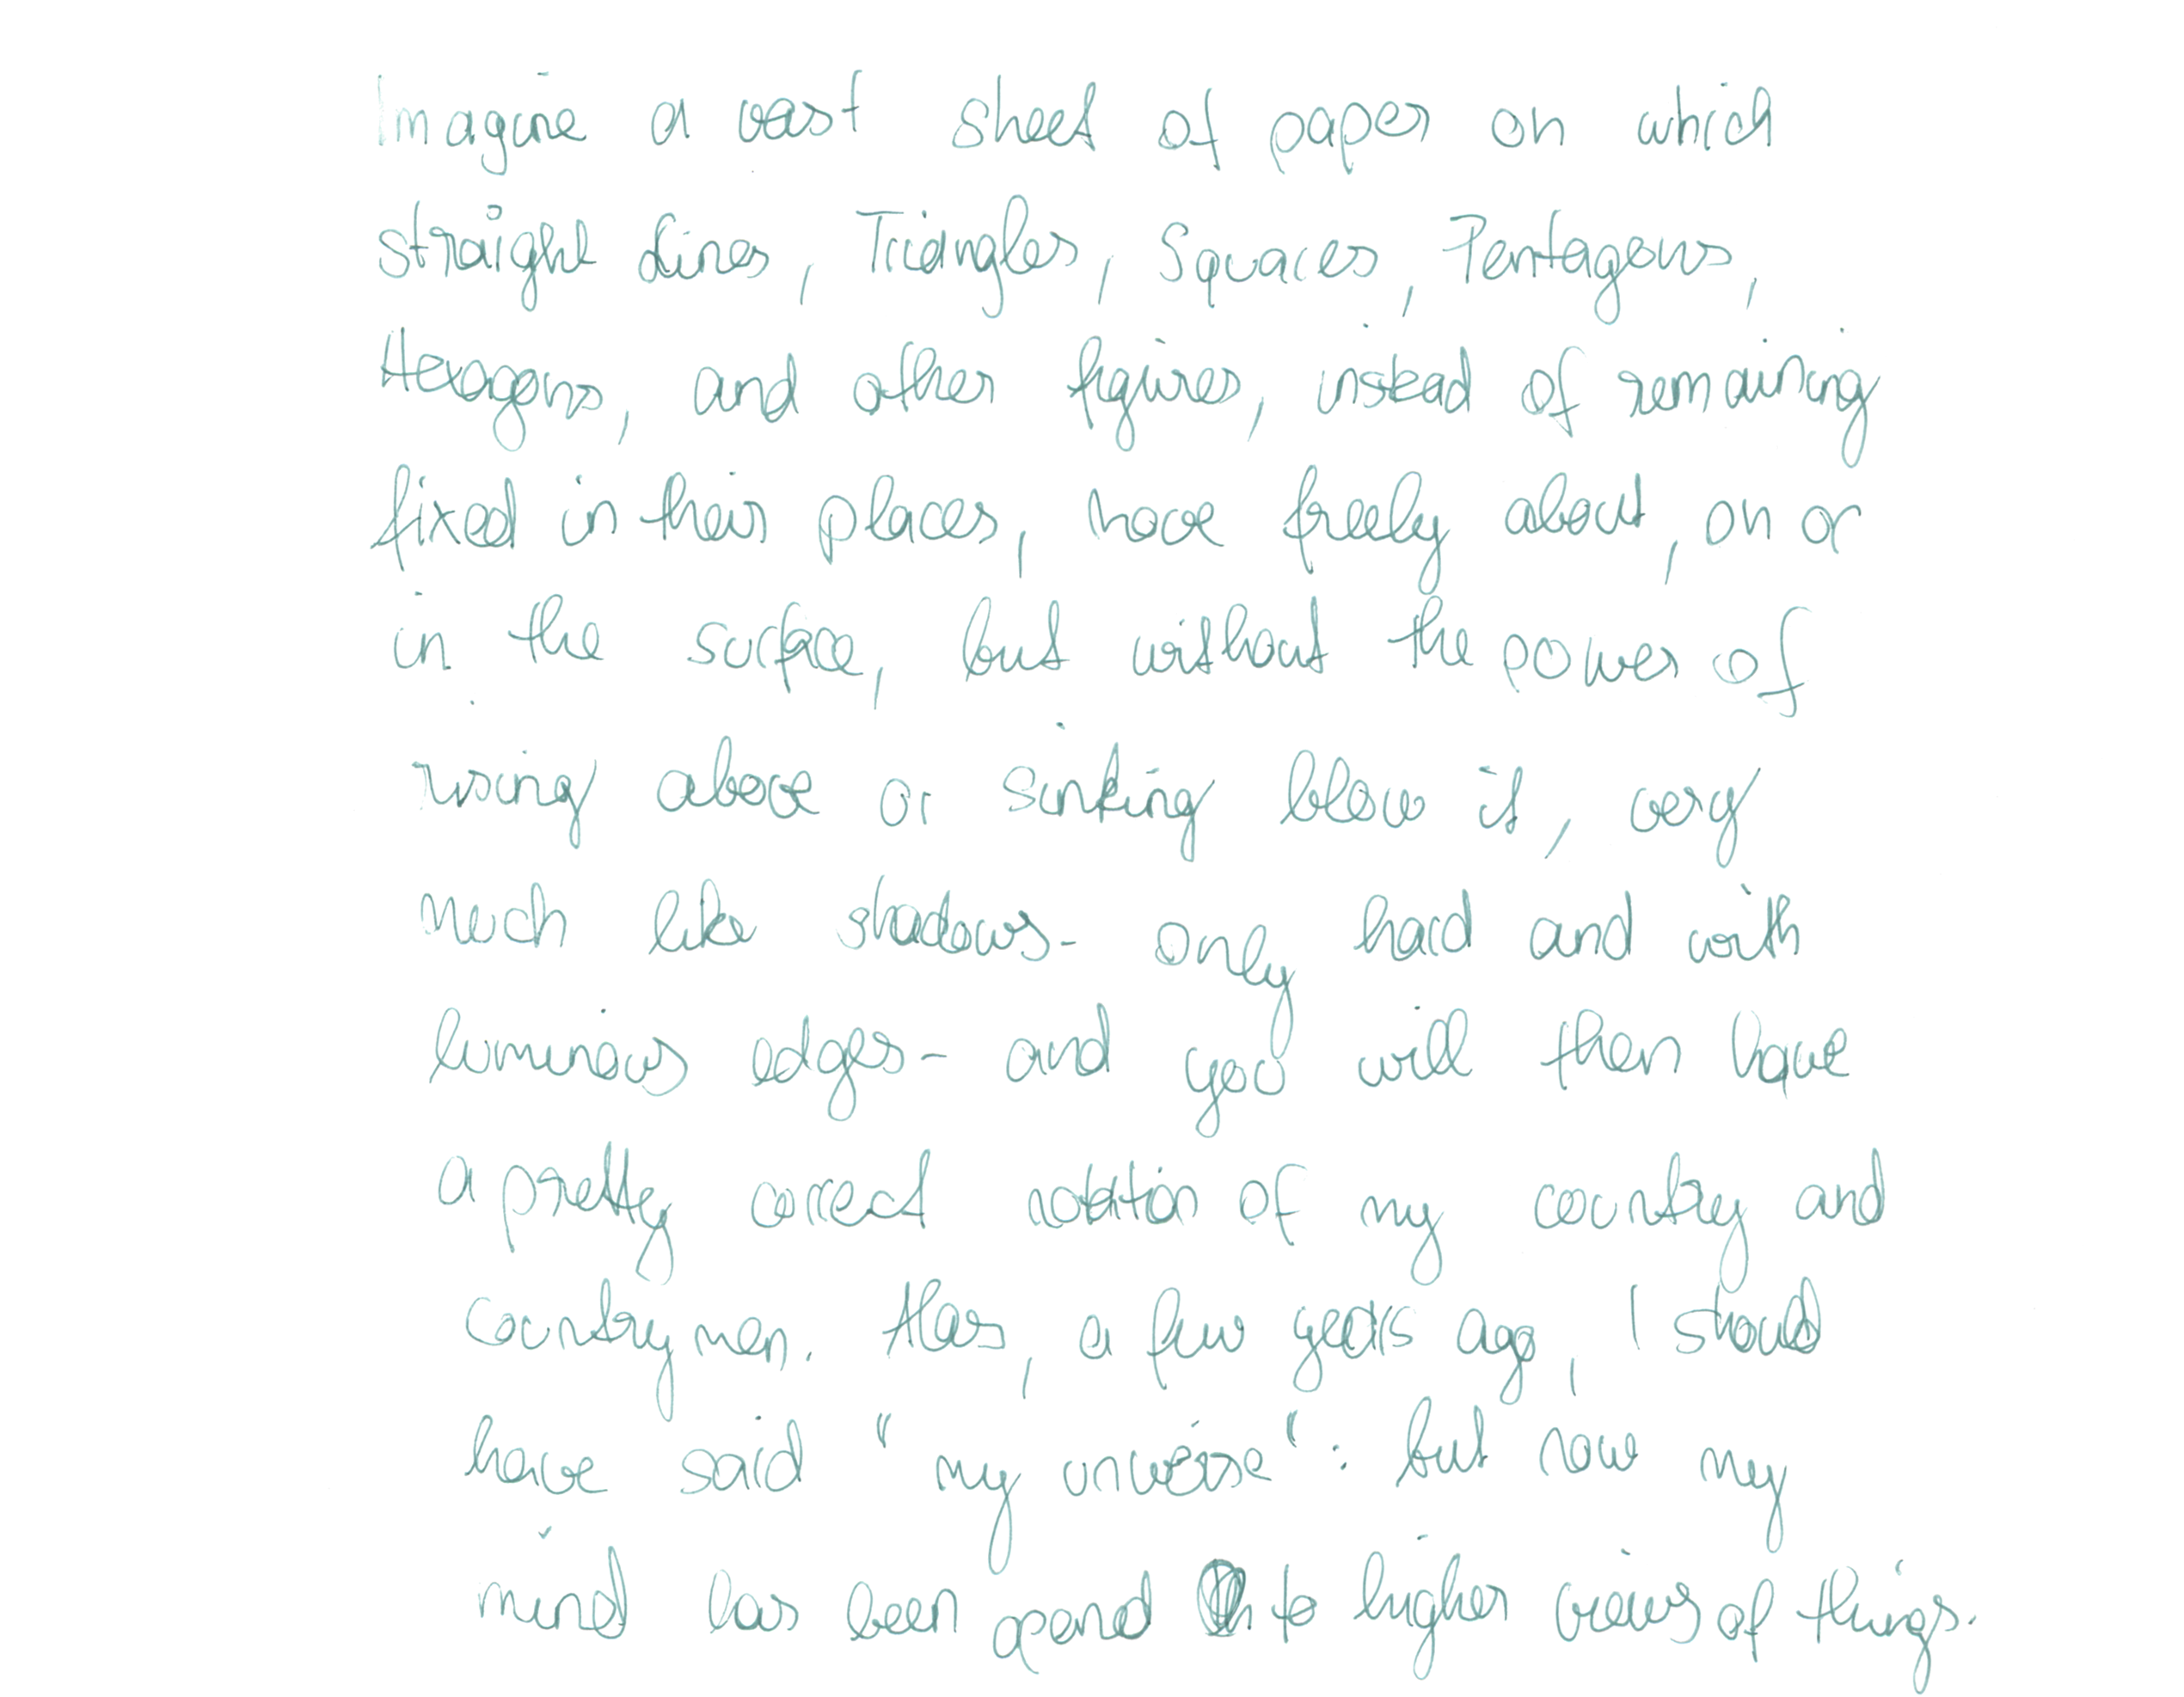 Imagine a vast sheet of paper on which
straight Lines, Triangles, Squares, Pentagons,
Hexagons, and other figures, instead of remaining
fixed in their places, move freely about, on or
in the surface, but without the power of
rising above or sinking below it, very
much like shadows - only hard and with
luminous edges - and you will then have
a pretty correct notation of my country and
countrymen. Alas, a few years ago, I should
have said "my universe": but now my
mind has been opened to higher views of things.